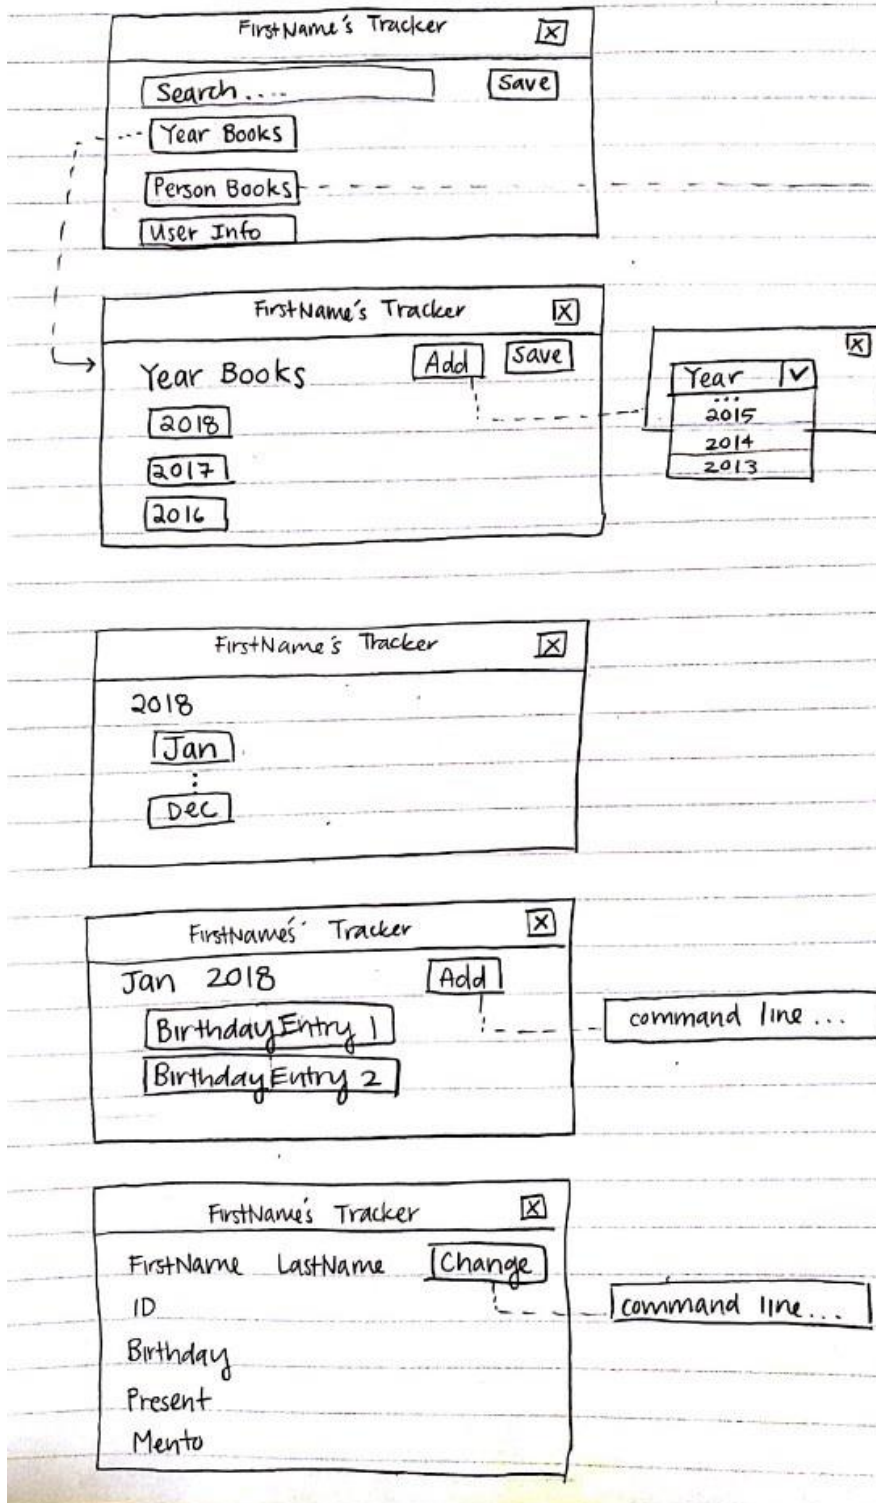 FirstName's Tracker X
Search.... Save
Year Books
Person Books
User Info
FirstName's Tracker X
Year Books Add Save
2018
2017
2016
X
Year
...
2015
2014
2013
FirstName's Tracker X
2018
Jan
Dec
FirstName's Tracker X
Jan 2018 Add
Birthday Entry 1
Birthday Entry 2
command line ...
FirstName's Tracker X
FirstName LastName Change
ID
Birthday
Present
Mento
command line...